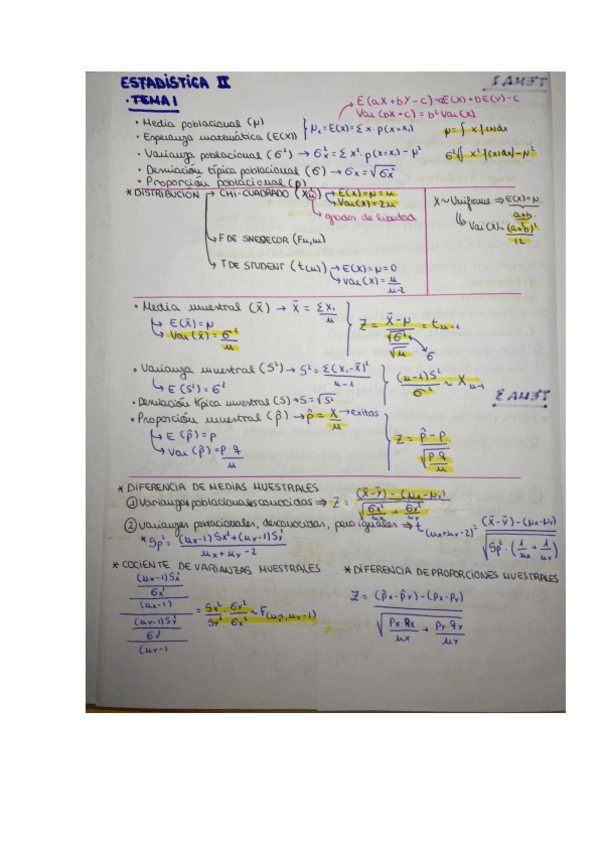 ESTADÍSTICA II
• TEMA 1
E(aX+bY-c)=aE(X)+bE(Y)-c
Var(bX+c)=b²Var(X)
• Media poblacional (μ)
• Esperanza matemática (E(X))
μₓ=E(X)=Σx·p(x=x₁)
μ=∫x f(x)dx
• Varianza poblacional (σ²) → σ²ₓ=Σx²·p(x=x₁)-μ²
σ²∫x² f(x)dx-μ²
• Desviación típica poblacional (σ) → σₓ=√σ²ₓ
• Proporción poblacional (p)
* DISTRIBUCIÓN → CHI-CUADRADO (X²n) → E(X)=μ=n
Var(X)=2n
grados de libertad
F DE SNEDECOR (Fn,m)
T DE STUDENT (t(n)) → E(X)=μ=0
Var(X)=n/n-2
X~Uniforme ⇒ E(X)=μ
a+b
Var(X)=(a+b)²/12
• Media muestral (X̄) → X̄=Σx₁/n
E(X̄)=μ
Var(X̄)=σ²/n
Z=X̄-μ/√σ²/√n=t n-1
σ
• Varianza muestral (S²) → S²=Σ(x₁-X̄)²/n-1
E(S²)=σ²
(n-1)S²/σ² ~ X n-1
• Desviación típica muestral (S) → S=√S²
• Proporción muestral (p̂) → p̂=X/n → exitos
E(p̂)=p
Var(p̂)=p·q/n
Z=p̂-p/√p·q/n
* DIFERENCIA DE MEDIAS MUESTRALES
① Varianzas poblacionales conocidas ⇒ Z=(X̄-Ȳ)-(μx-μy)/√σx²/nx+σy²/ny
② Varianzas poblacionales, desconocidas, pero iguales ⇒ t(nx+ny-2)=(X̄-Ȳ)-(μx-μy)/√Sp²·(1/nx+1/ny)
* Sp²=(nx-1)Sx²+(ny-1)Sy²/nx+ny-2
* COCIENTE DE VARIANZAS MUESTRALES
(nx-1)Sx²/σx²/(nx-1)/(ny-1)Sy²/σy²/(ny-1=Sx²·σy²/Sy²·σx² ~ F(nx-1,ny-1)
* DIFERENCIA DE PROPORCIONES MUESTRALES
Z=(p̂x-p̂y)-(px-py)/√px·qx/nx+py·qy/ny